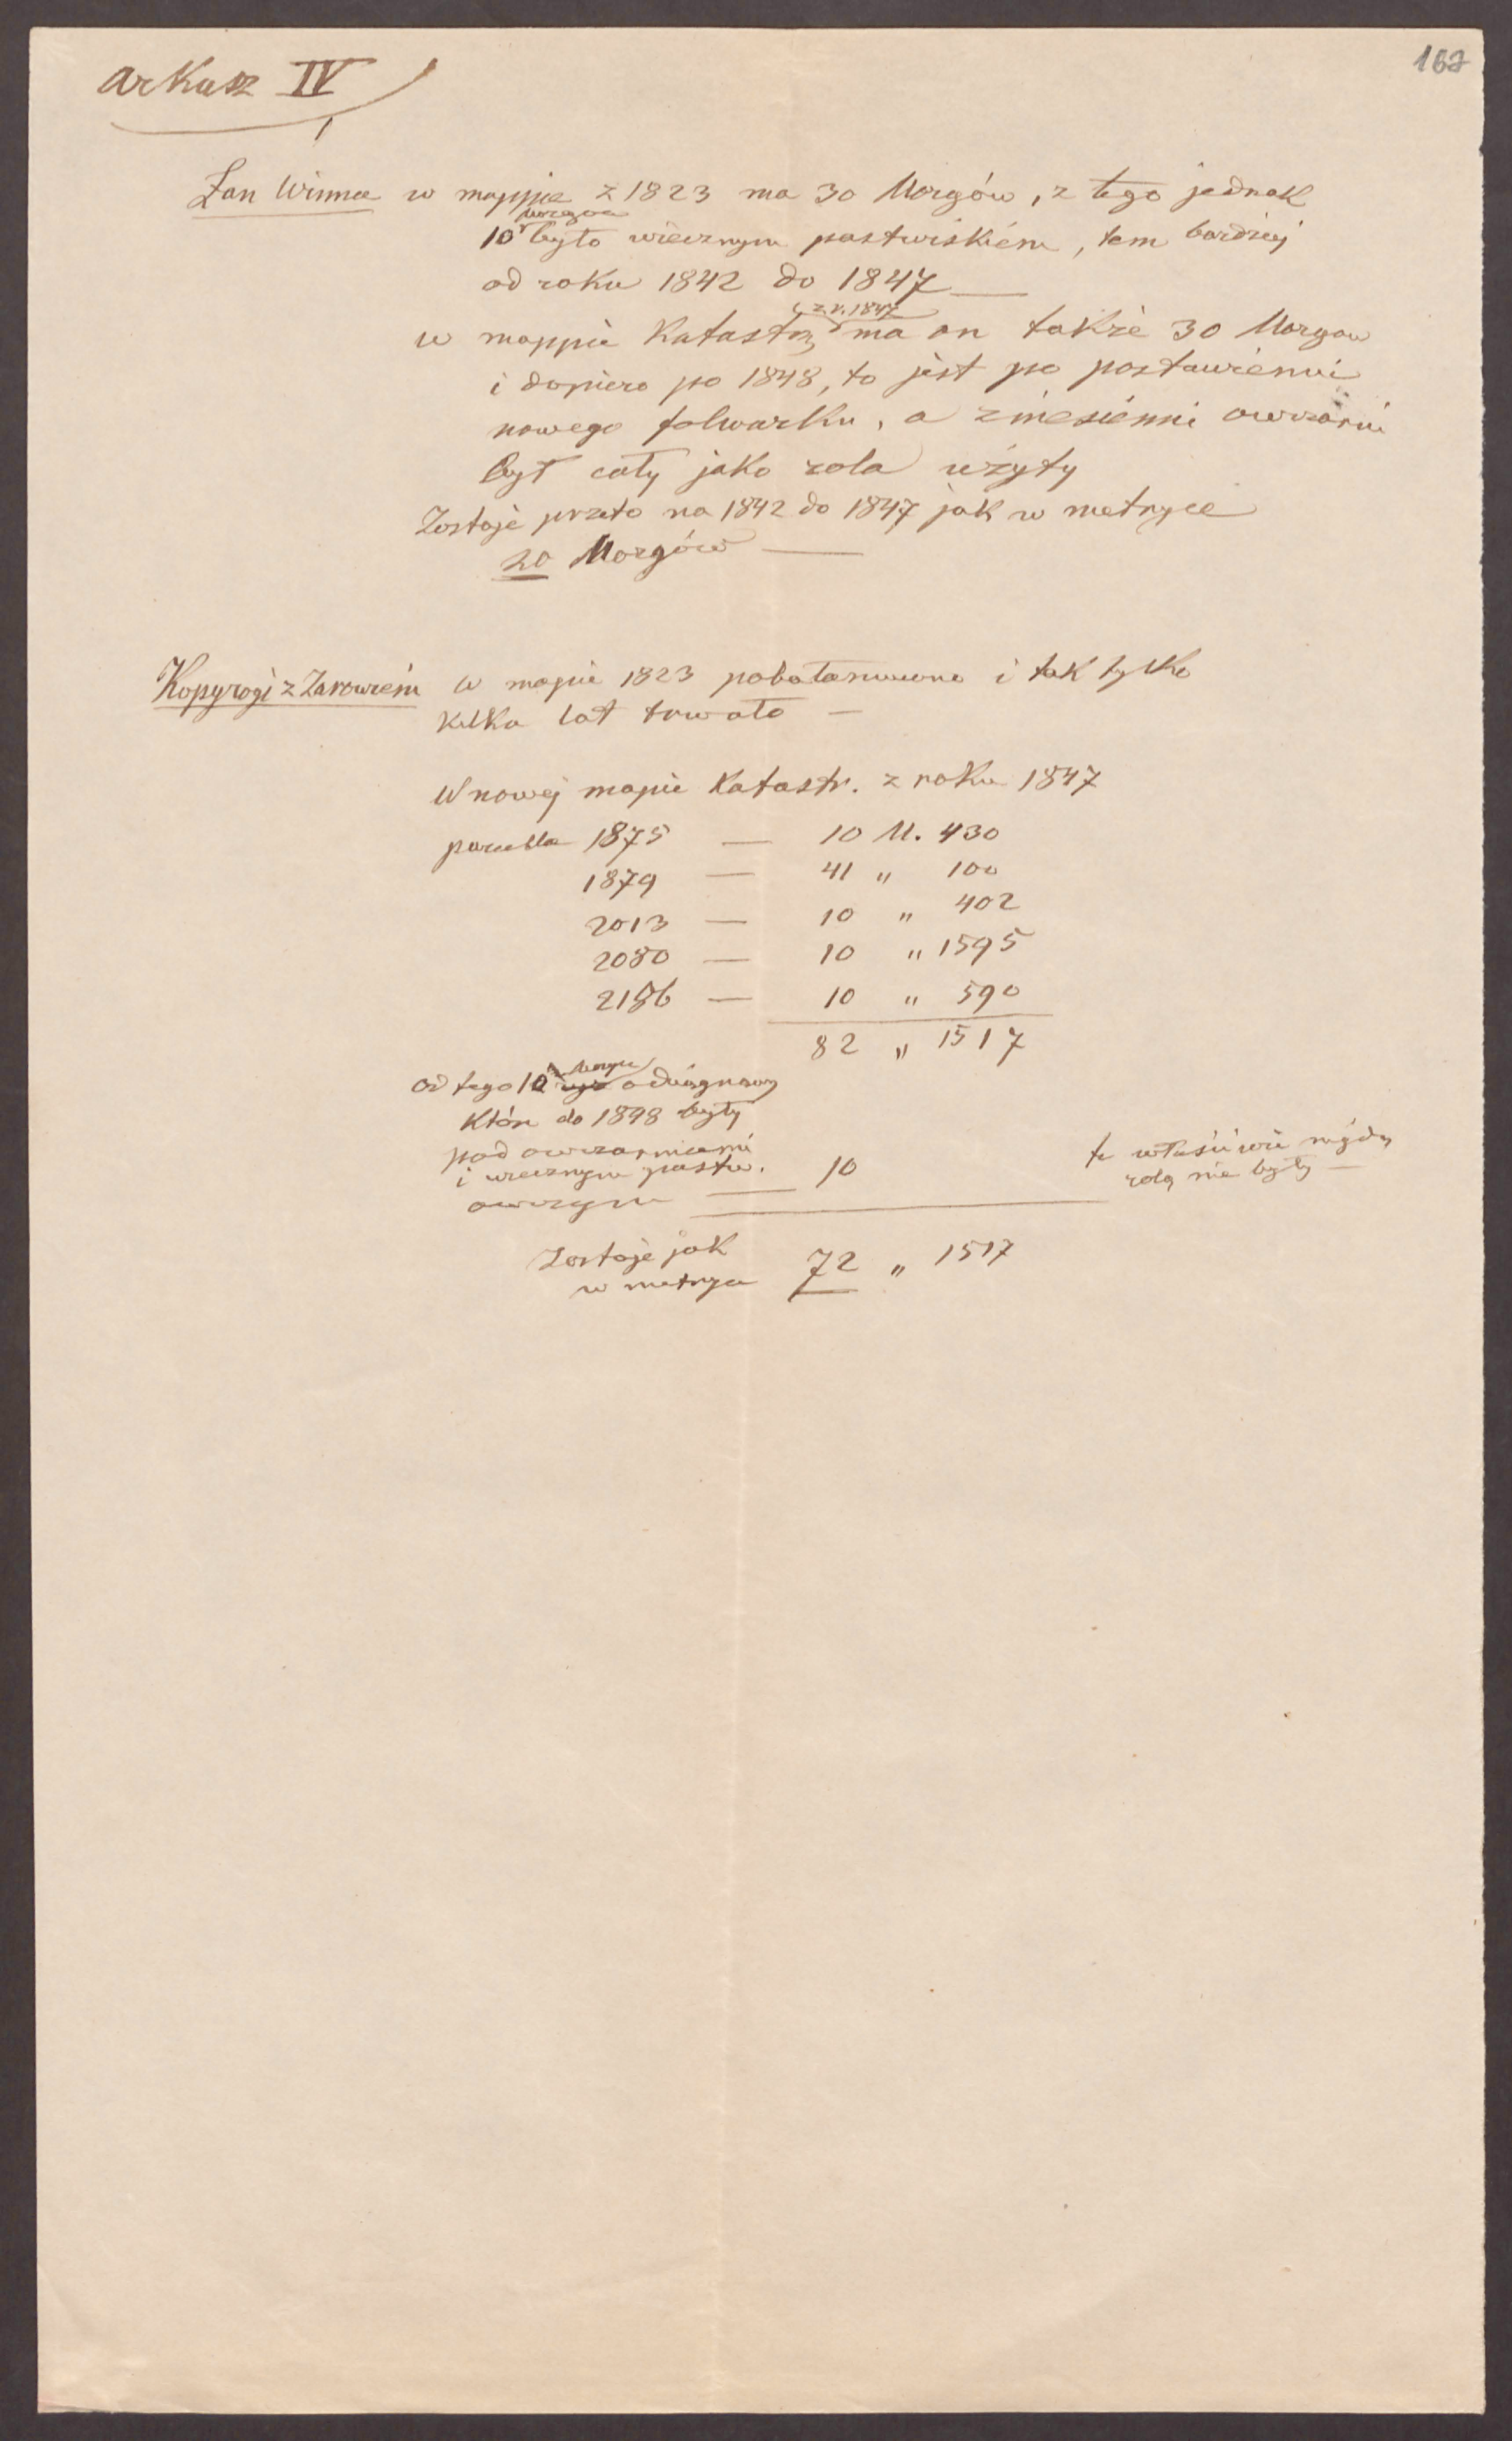 167
Arkusz IV
Łan Winna w mappie z 1823 ma 30 Morgów, z tego jednak
Morgów
10 było wiecznym pastwiskiem, tem bardziej
od roku 1842 do 1847 —
z r. 1847
w mappie Katastr. ma on także 30 Morgow
i dopiero po 1848, to jest po postawieniu
nowego folwarku, a zniesienni owczarni
był cały jako rola użyty
Zostaje przeto na 1842 do 1847 jak w metryce
20 Morgów —
Kopyrogi z w mapie 1823 i tak tylko
kilka lat trwało —
W nowej mapie Katastr. z roku 1847
parcella 1875 — 10 M. 430
1879 — 41 " 100
2013 — 10 " 402
2080 — 10 " 1595
2186 — 10 " 590
82 " 1517
Morgi
od tego 10 odciągnąwszy
Które do 1848 były
pod owczarniami
i wiecznym pastw. 10 te właściwie nigdy
rolą nie były —
owczym —
Zostaje jak 72 " 1517
w metryce